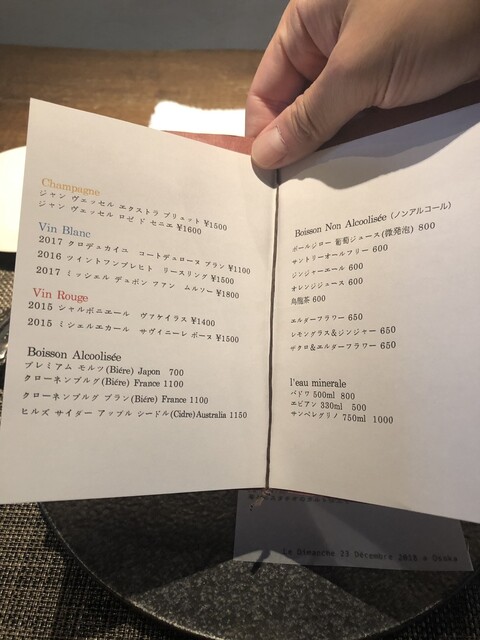 Champagne
ジャン ヴェッセル エクストラ ブリュット ¥1500
ジャン ヴェッセル ロゼ ド セニエ ¥1600
Vin Blanc
2017 クロデュカイユ コートデュローヌ ブラン ¥1100
2016 ツイントフンプレヒト リースリング ¥1500
2017 ミッシェル デュポン ファン ムルソー ¥1800
Vin Rouge
2015 シャルボニエール ヴァケイラス ¥1400
2015 ミシェルエカール サヴィニーレ ボーヌ ¥1500
Boisson Alcoolisée
プレミアム モルツ(Biére) Japon 700
クローネンブルグ(Biére) France 1100
クローネンブルグ ブラン(Biére) France 1100
ヒルズ サイダー アップル シードル(Cidre)Australia 1150
Boisson Non Alcoolisée (ノンアルコール)
ポールジロー 葡萄ジュース(微発泡) 800
サントリーオールフリー 600
ジンジャーエール 600
オレンジジュース 600
烏龍茶 600
エルダーフラワー 650
レモングラス&ジンジャー 650
ザクロ&エルダーフラワー 650
l'eau minerale
バドワ 500ml 800
エビアン 330ml 500
サンペレグリノ 750ml 1000
Le Dimanche 23 Décembre 2018 à Osaka